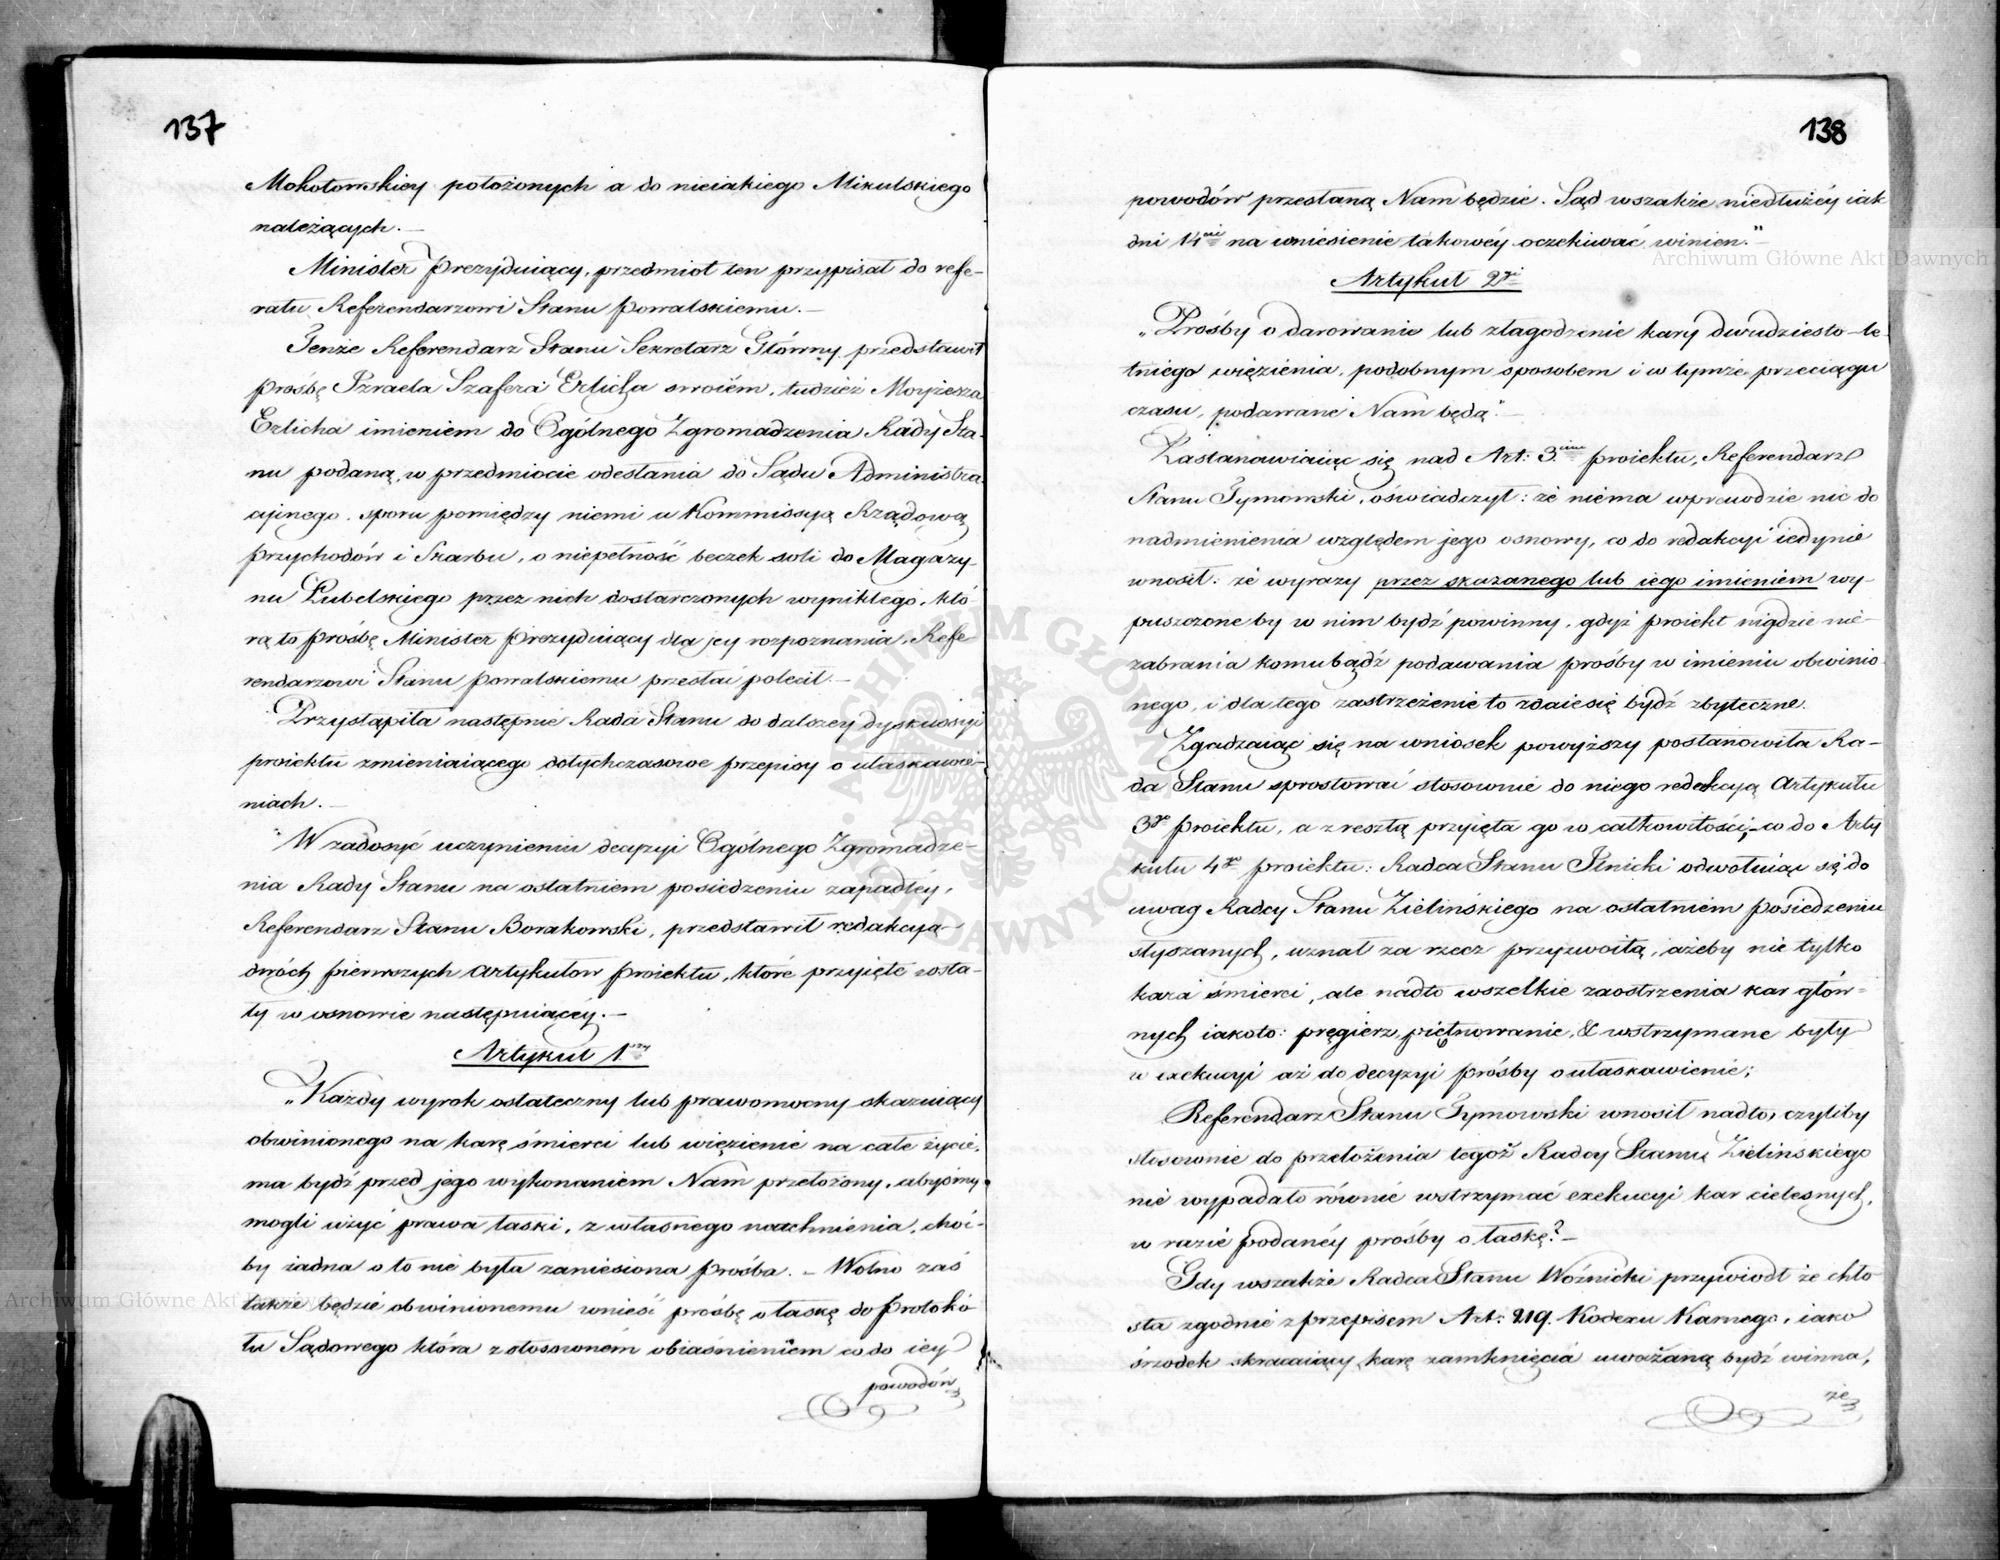 137
Mokotowskiey położonych a do nieiakiego Mikulskiego
należących.—
Minister Prezyduiący, przedmiot ten przypisał do refe-
ratu Referendarzowi Stanu Powalskiemu.—
Tenże Referendarz Stanu Sekretarz Główny przedstawił
prośbę Izraela Szafera Erlicha swoiém, tudzież Moyżesza
Erlicha imieniem do Ogólnego Zgromadzenia Rady Sta-
nu podaną, w przedmiocie odesłania do Sądu Administra-
cyjnego, sporu pomiędzy niemi a Kommissyą Rządową
Przychodów i Skarbu, o niepełność beczek soli do Magazy-
nu Lubelskiego przez nich dostarczonych wynikłego, któ-
rą to prośbę Minister Prezyduiący dla jey rozpoznania, Refe-
rendarzowi Stanu Powalskiemu przesłać polecił.—
Przystąpiła następnie Rada Stanu do dalszey dyskussyi
proiektu zmieniaiącego dotychczasowe przepisy o ułaskawie-
niach.—
W zadosyć uczynieniu decyzyi Ogólnego Zgromadze-
nia Rady Stanu na ostatniem posiedzeniu zapadłéy,
Referendarz Stanu Borakowski, przedstawił redakcyą
dwóch pierwszych Artykułów Proiektu, które przyięte zosta-
ły w osnowie następuiącéy.—
Artykuł 1szy
„Każdy wyrok ostateczny lub prawomocny skazuiący
obwinionego na karę śmierci lub więzienie na całe życie,
ma bydź przed jego wykonaniem Nam przełożony, abyśmy
mogli użyć prawa łaski, z własnego natchnienia, choć-
by żadna o to nie była zaniesiona prośba. — Wolno zaś
także będzie obwinionemu wnieść prośbę o łaskę do Protokó-
łu Sądowego która z stosowném obiaśnieniem co do iey
powodów
138
powodów przesłaną Nam będzie. Sąd wszakże niedłużéy iak
dni 14cie na wniesienie takowéy oczekiwać winien."—
Artykuł 2gi
„Prośby o darowanie lub złagodzenie kary dwudziesto-le-
tniego więzienia, podobnym sposobem i w tymże przeciągu
czasu, podawane Nam będą".—
Zastanawiaiąc się nad Art: 3cim Proiektu, Referendarz
Stanu Tymowski, oświadczył: że niema wprawdzie nic do
nadmienienia względem jego osnowy, co do redakcyi iedynie
wnosił: że wyrazy przez skazanego lub iego imieniem wy-
puszczone by w nim bydź powinny, gdyż proiekt nigdzie nie-
zabrania komubądź podawania prośby w imieniu obwinio-
nego, i dla tego zastrzeżenie to zdaie się bydź zbyteczne.
Zgadzaiąc się na wniosek powyższy postanowiła Ra-
da Stanu sprostować stosownie do niego redakcyą Artykułu
3go Proiektu, a zresztą przyięła go w całkowitości; — co do Arty
kułu 4go proiektu: Radca Stanu Ilnicki odwołuiąc się do
uwag Radcy Stanu Zielińskiego na ostatniem Posiedzeniu
słyszanych, uznał za rzecz przyzwoitą, ażeby nie tylko
kara śmierci, ale nadto wszelkie zaostrzenia kar głów-
nych iakoto: pręgierz, piętnowanie, & wstrzymane były
w exekucyi aż do decyzyi prośby o ułaskawienie;
Referendarz Stanu Tymowski wnosił nadto, czyliby
stosownie do przełożenia tegoż Radcy Stanu Zielińskiego
nie wypadało równie wstrzymać exekucyi kar cielesnych,
w razie podanéy prośby o łaskę?—
Gdy wszakże Radca Stanu Woźnicki przywiódł że chło-
sta zgodnie z przepisem Art: 219. Kodexu Karnego, iako
środek skracaiący karę zamknięcia uważaną bydź winna,
że
Archiwum Główne Akt Dawnych
Archiwum Główne Akt Dawnych
ARCHIWUM GŁÓWNE AKT DAWNYCH